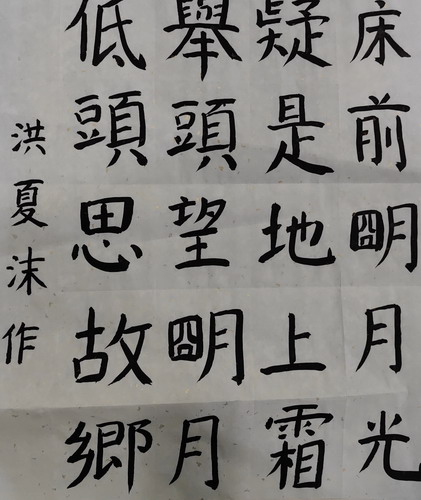 床前朙月光
疑是地上霜
舉頭望朙月
低頭思故鄉
洪夏沫作